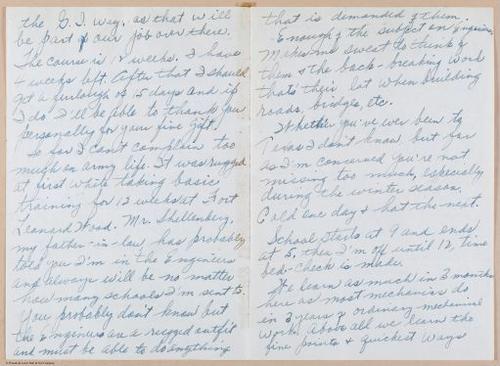 the G.I. way, as that will
be part of our job over there.
The course is 12 weeks. I have
4 weeks left. After that I should
get a furlough of 5 days and if
I do I'll be able to thank you
personally for your fine gift.
So far I can't complain too
much on army life. It was rugged
at first while taking basic
training for 12 weeks at Fort
Leonard Wood. Mr. Shellenberg,
my father-in-law, has probably
told you I'm in the Engineers
and always will be no matter
how many schools I'm sent to.
You probably don't know but
the Engineers are a rugged outfit
and must be able to do anything
that is demanded of them.
Enough of the subject on Engineers,
Makes me sweat to think of
them & the back-breaking work
thats their lot when building
roads, bridges, etc.
Whether you've ever been to
Texas I don't know but far
as I'm concerned you're not
missing too much, especially
during the winter season.
Cold one day & hot the next.
School starts at 9 and ends
at 5, then I'm off until 12, time
bed-check is made.
We learn as much in 3 months
here as most mechanics do
in 3 years of ordinary mechanical
work. Above all we learn the
fine points & quickest ways